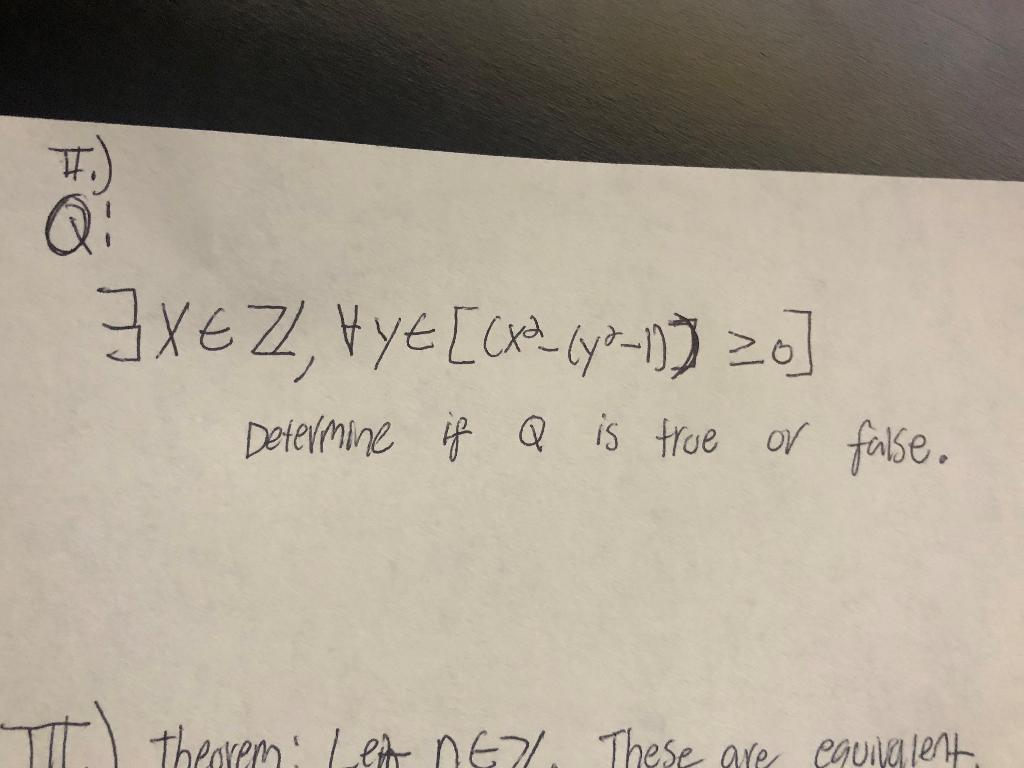 II.)
Q:
∃x∈ℤ, ∀y∈[(x²-(y²-1)) ≥0]
Determine if Q is true or false.
III.) Theorem: Let n∈ℤ. These are equivalent.